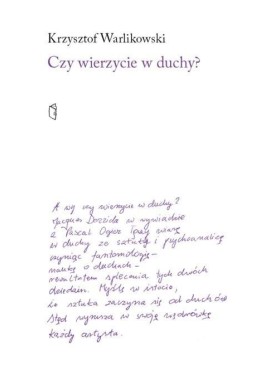 Krzysztof Warlikowski
Czy wierzycie w duchy?
A wy czy wierzycie w duchy?
Jacques Derrida w wywiadzie
z Pascal Ogier tak, wierzę
w duchy za sztukę i psychoanalizę
czyniąc fantomologię –
naukę o duchach –
rezultatem splecenia tych dwóch
dziedzin. Myślę w istocie,
że sztuka zaczyna się od duchów
Stąd wyrusza w swoją wędrówkę
każdy artysta.